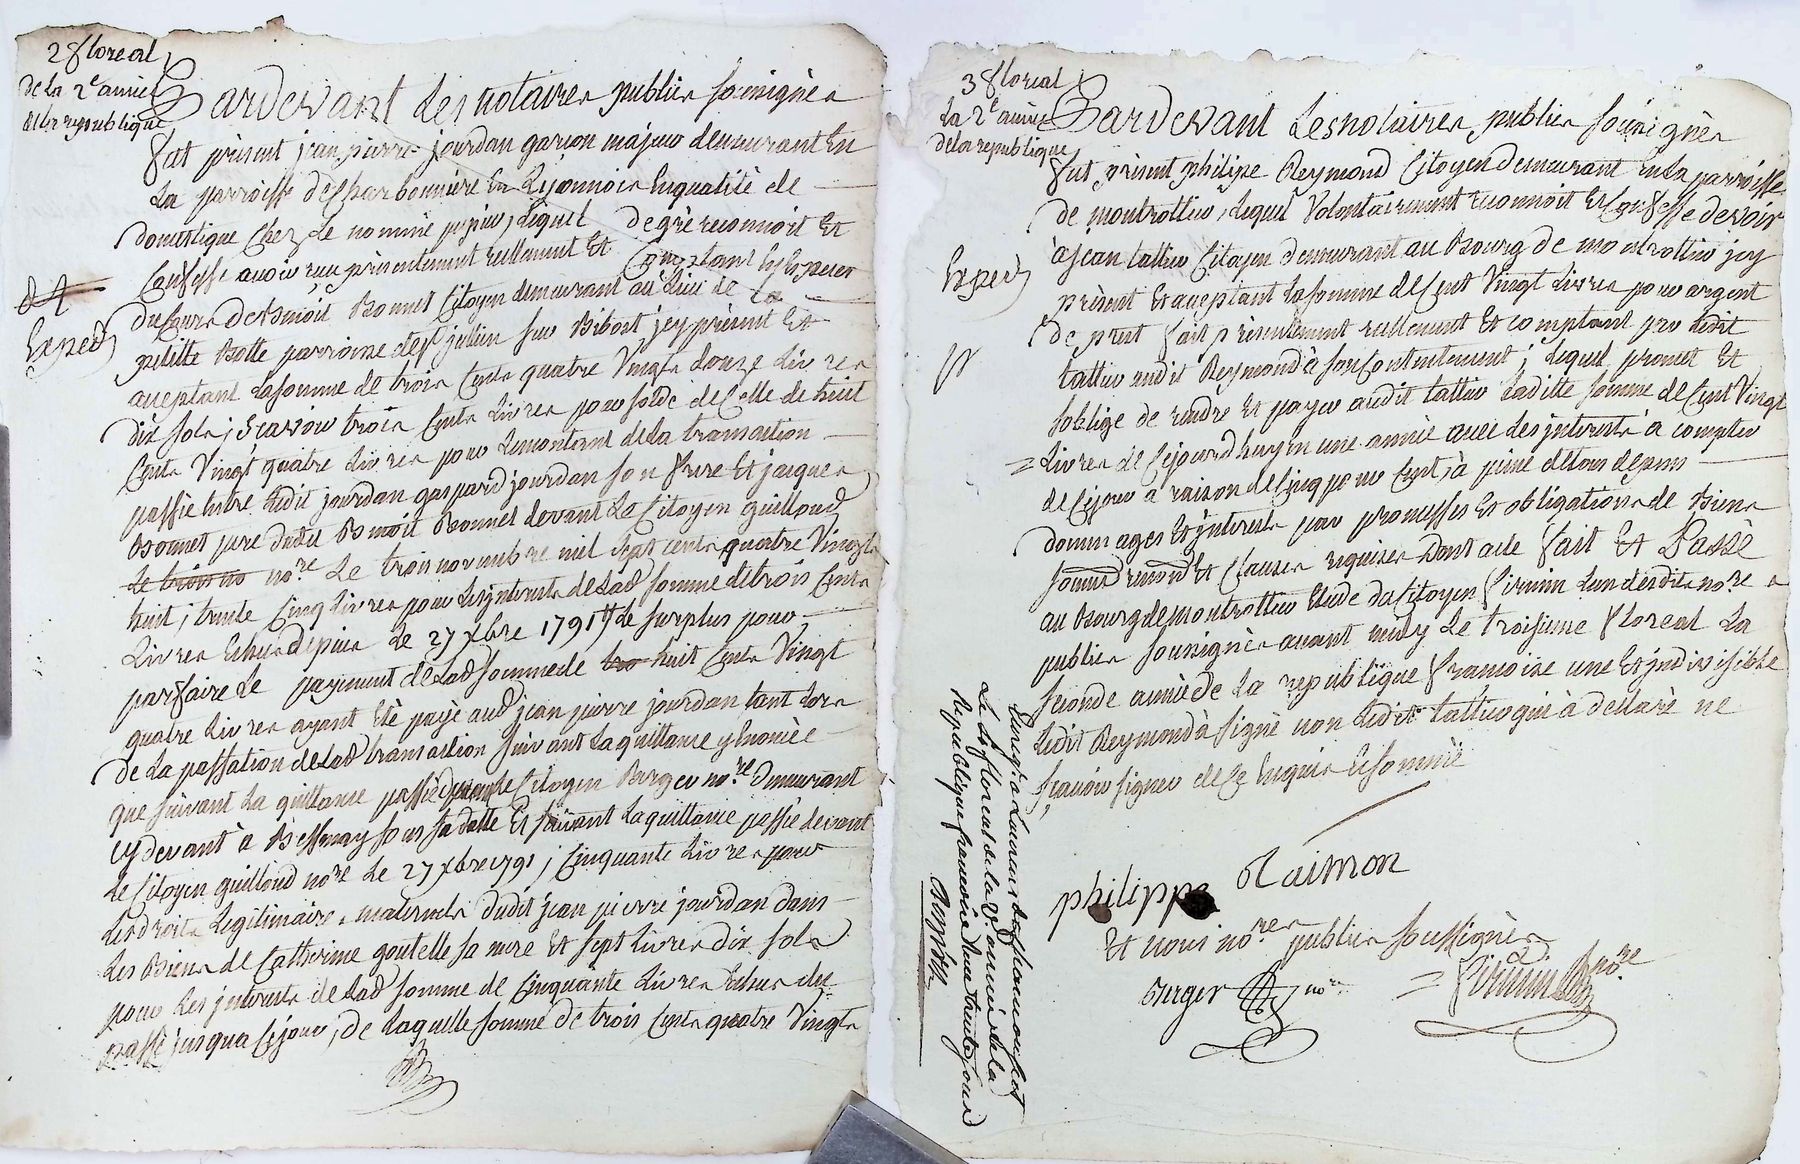 2 floreal
de la 2e année
de la republique
Pardevant Les notaires publics soussignés
fut présent jean pierre jourdan garçon majeur demeurant En
La parroisse de Charbonnière En Lyonnois Enqualité de
domestique Chez Le nommé pupier, Lequel de gré reconnoit Et
Confesse avoir reçu présentement réellement Et Comptant En Especes
Exped
du Cours de Benoit Bonnet Citoyen demeurant au Lieu de La
petitte Botte parroisse de st julien sur Bibost, jcy présent Et
acceptant La somme de trois Cents quatre Vingts douze Livres
dix sols, Sçavoir trois Cents Livres pour solde de Celle de huit
Cents Vingt quatre Livres pour Le montant de la transaction
passée Entre Ledit jourdan gaspard jourdan son frere Et jacques
Bonnet pere dudit Benoit Bonnet devant Le Citoyen guilloud
Le trois no nore Le trois novembre mil sept cents quatre Vingts
huit; trente Cinq Livres pour Les jnterests de Lad somme de trois Cents
Livres Echus depuis Le 27 xbre 1791, Le surplus pour
parfaire Le payement de Lad somme de tro huit Cents Vingt
quatre Livres ayant Eté payé aud jean pierre jourdan tant Lors
de La passation de Lad transaction suivant La quittance y Enoncée
que suivant La quittance passée devant Le Citoyen Burger nore demeurant
cy devant à Bessenay sous sa datte Et suivant La quittance passée devant
Le Citoyen guilloud nore Le 27 xbre 1791; Cinquante Livres pour
Les droits Legitimaires maternels dudit jean pierre jourdan dans
Les Biens de Catherine goutelle sa mere Et sept Livres dix sols
pour Les jnterests de Lad somme de Cinquante Livres Echus du
passé jusqua Ce jour, de Laquelle somme de trois Cents quatre Vingts
3 floreal
La 2e année
de la republique
Pardevant Les notaires publics soussignés
fut présent philipe Reymond Citoyen demeurant En la parroisse
de montrottier, Lequel Volontairement reconnoit Et Confesse devoir
à jean tattier Citoyen demeurant au Bourg de montrottier jcy
Exped
présent Et acceptant La somme de Cent Vingt Livres pour argent
de prêt fait présentement réellement Et comptant par Ledit
tattier audit Reymond à son Contentement; Lequel promet Et
soblige de rendre Et payer audit tattier Ladite somme de Cent Vingt
Livres de Cejourdhuy en une année avec Les jnterests à compter
de Ce jour a raison de Cinq pour Cent, à peine de tous depens
dommages Et jnterests par promesses Et obligations de Biens
soumis renond Et Clauses requises Dont acte fait Et Passé
au Bourg de montrottier Etude du Citoyen firmin L'un desdits nores
publics soussignés avant midy Le troisieme floreal La
seconde année de La republique françoise une Et jndivisible
Ledit Reymond à signé non Ledit tattier qui à déclaré ne
sçavoir signer de Ce Enquis Et sommé
philippe Raimon
Et nous nores publics soussignés
Burger nore
firmin nore
Enregé a
La 16 floreal de la 2e année de la
Republique francoise Recu trente sous